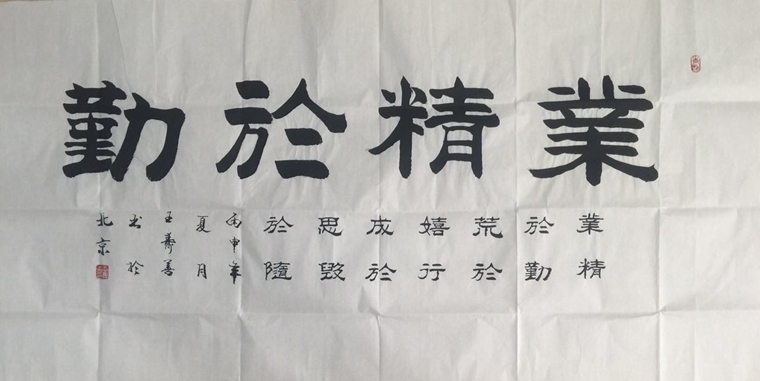 業精於勤
業精
於勤
荒於
嬉行
成於
思毀
於隨
丙申年
夏月
王壽善
书於
北京